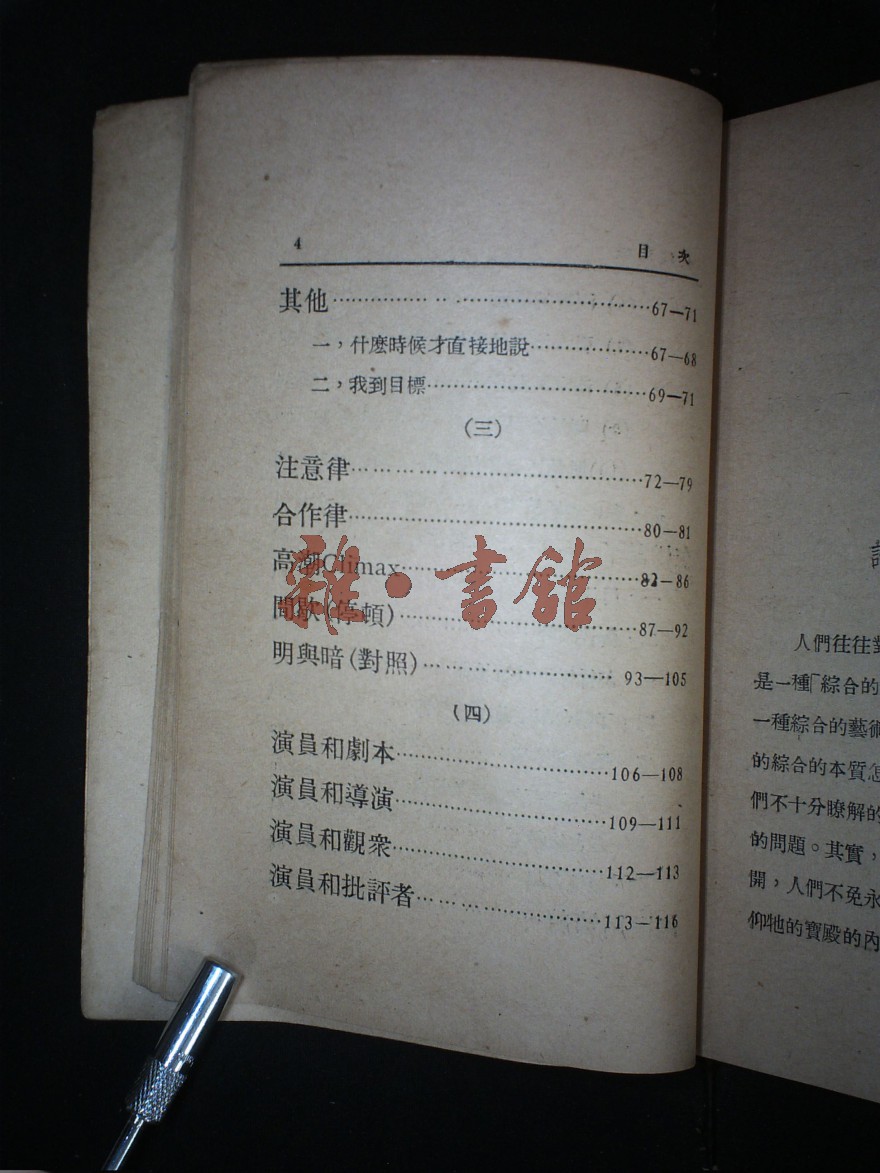 4 目次
其他……………………………67—71
一，什麽時候才直接地說………………67—68
二，我到目標……………………………69—71
(三)
注意律……………………………72—79
合作律……………………………80—81
高潮Climax……………………………82—86
間歇(停頓)……………………………87—92
明與暗(對照)……………………………93—105
(四)
演員和劇本……………………………106—108
演員和導演……………………………109—111
演員和觀衆……………………………112—113
演員和批評者……………………………113—116
雜·書館
人們往往對
是一種「綜合的
一種綜合的藝術
的綜合的本質怎
們不十分瞭解的
的問題。其實，
開，人們不免永
仰牠的寶殿的內